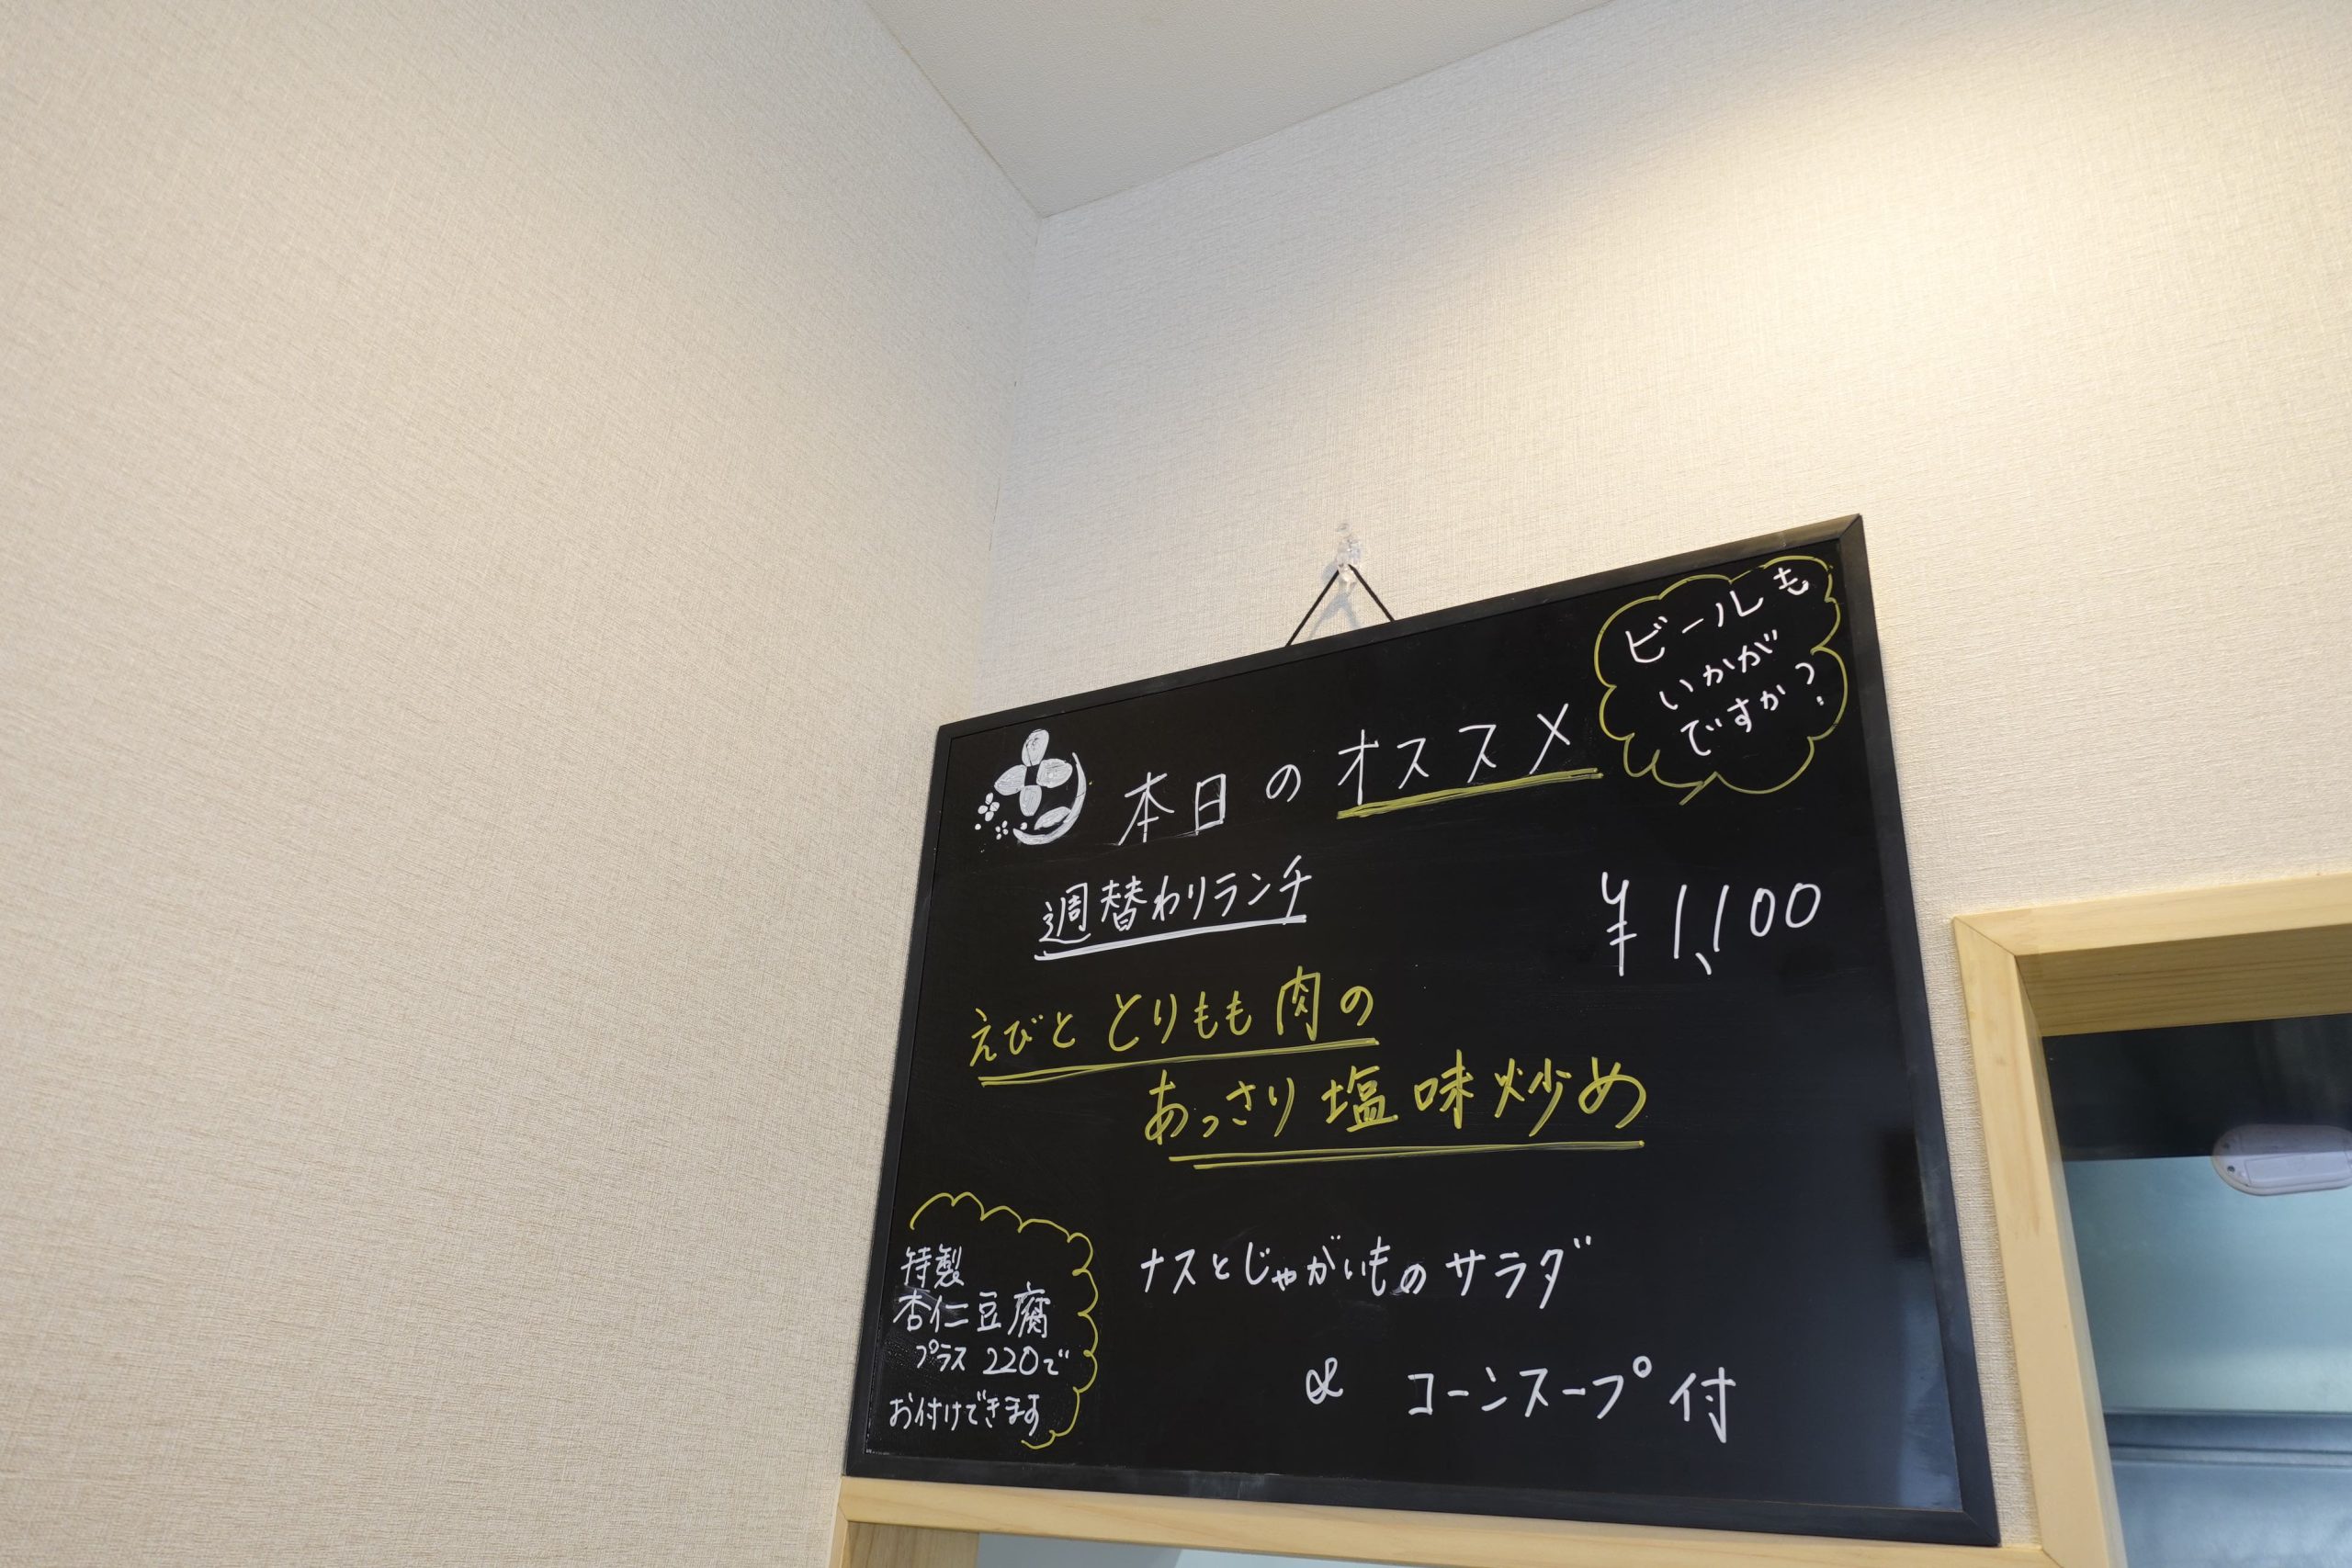 本日のオススメ
ビールも
いかが
ですか?
週替わりランチ
¥1,100
えびと とりもも肉の
あっさり塩味炒め
ナスとじゃがいものサラダ
& コーンスープ付
特製
杏仁豆腐
プラス220で
お付けできます